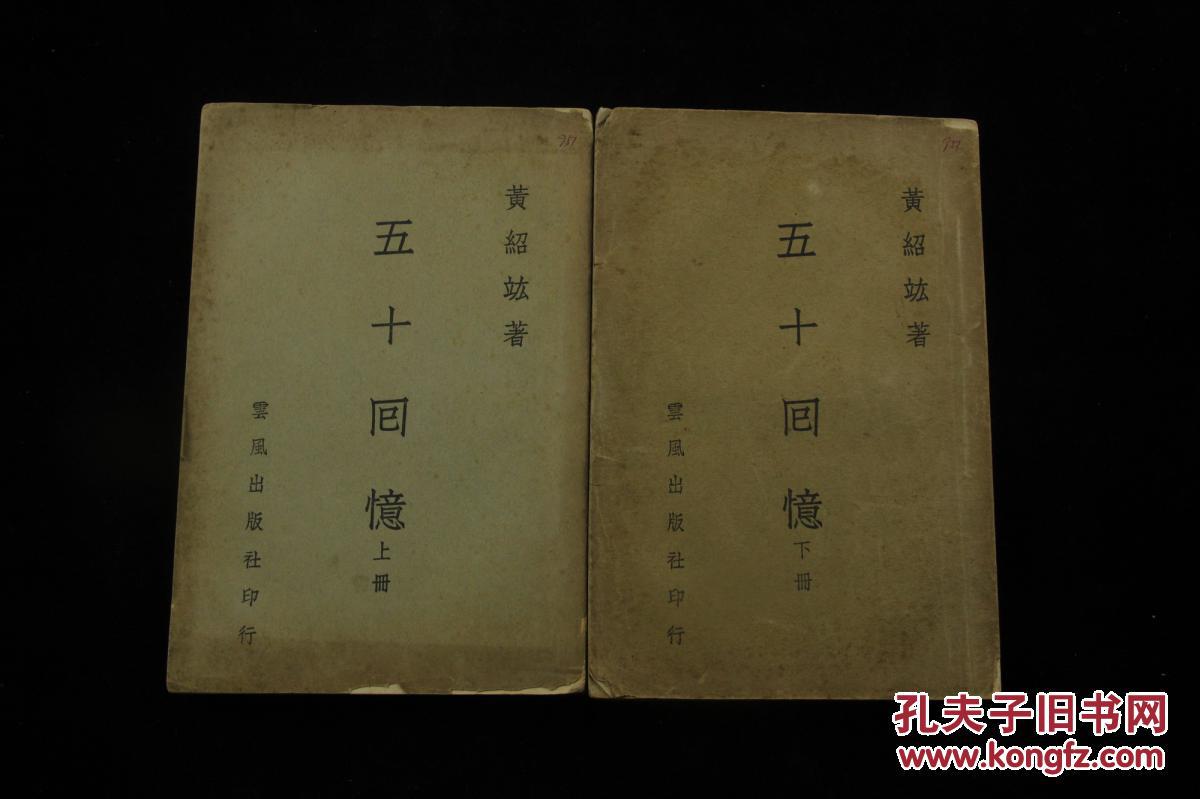 黃紹竑著
五十回憶
上冊
雲風出版社印行
黃紹竑著
五十回憶
下冊
雲風出版社印行
孔夫子旧书网
www.kongfz.com